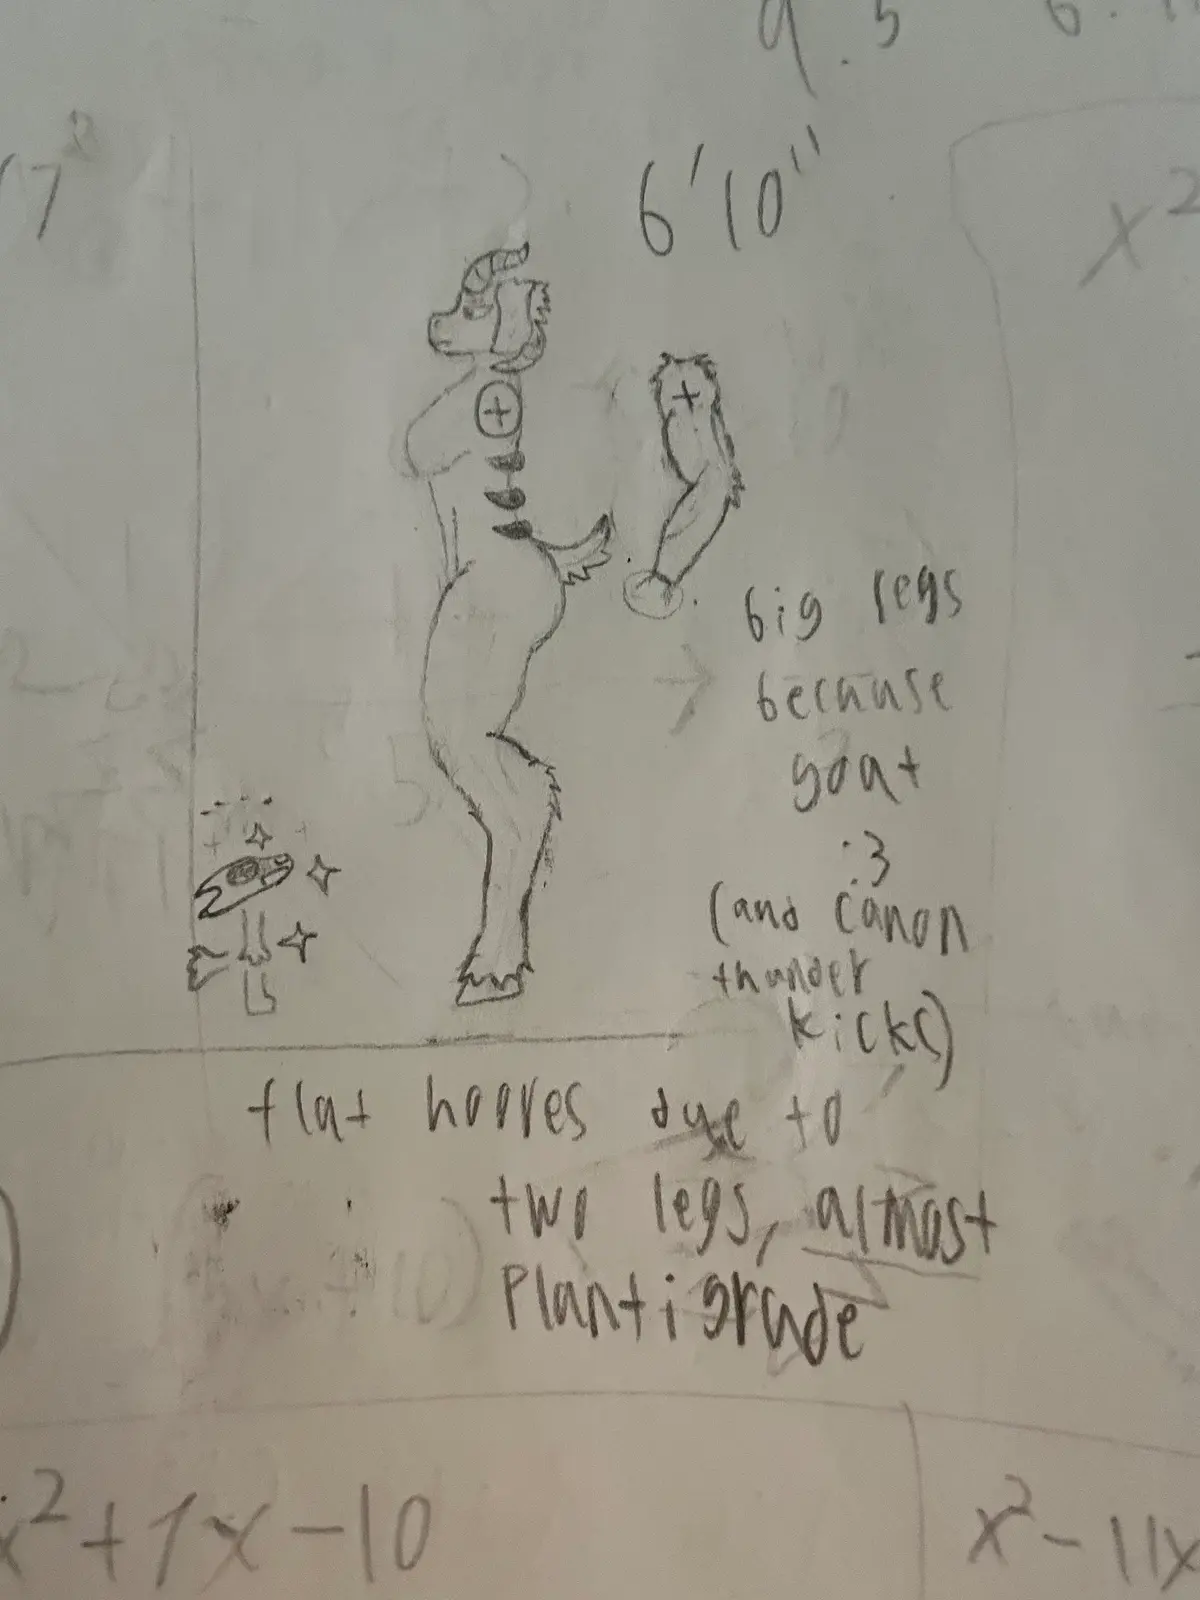 9.5
6'10"
x²
big legs
because
goat
:3
(and canon
thunder
kicks)
flat hooves due to
two legs, almost
Plantigrade
x²+7x-10
x²-11x